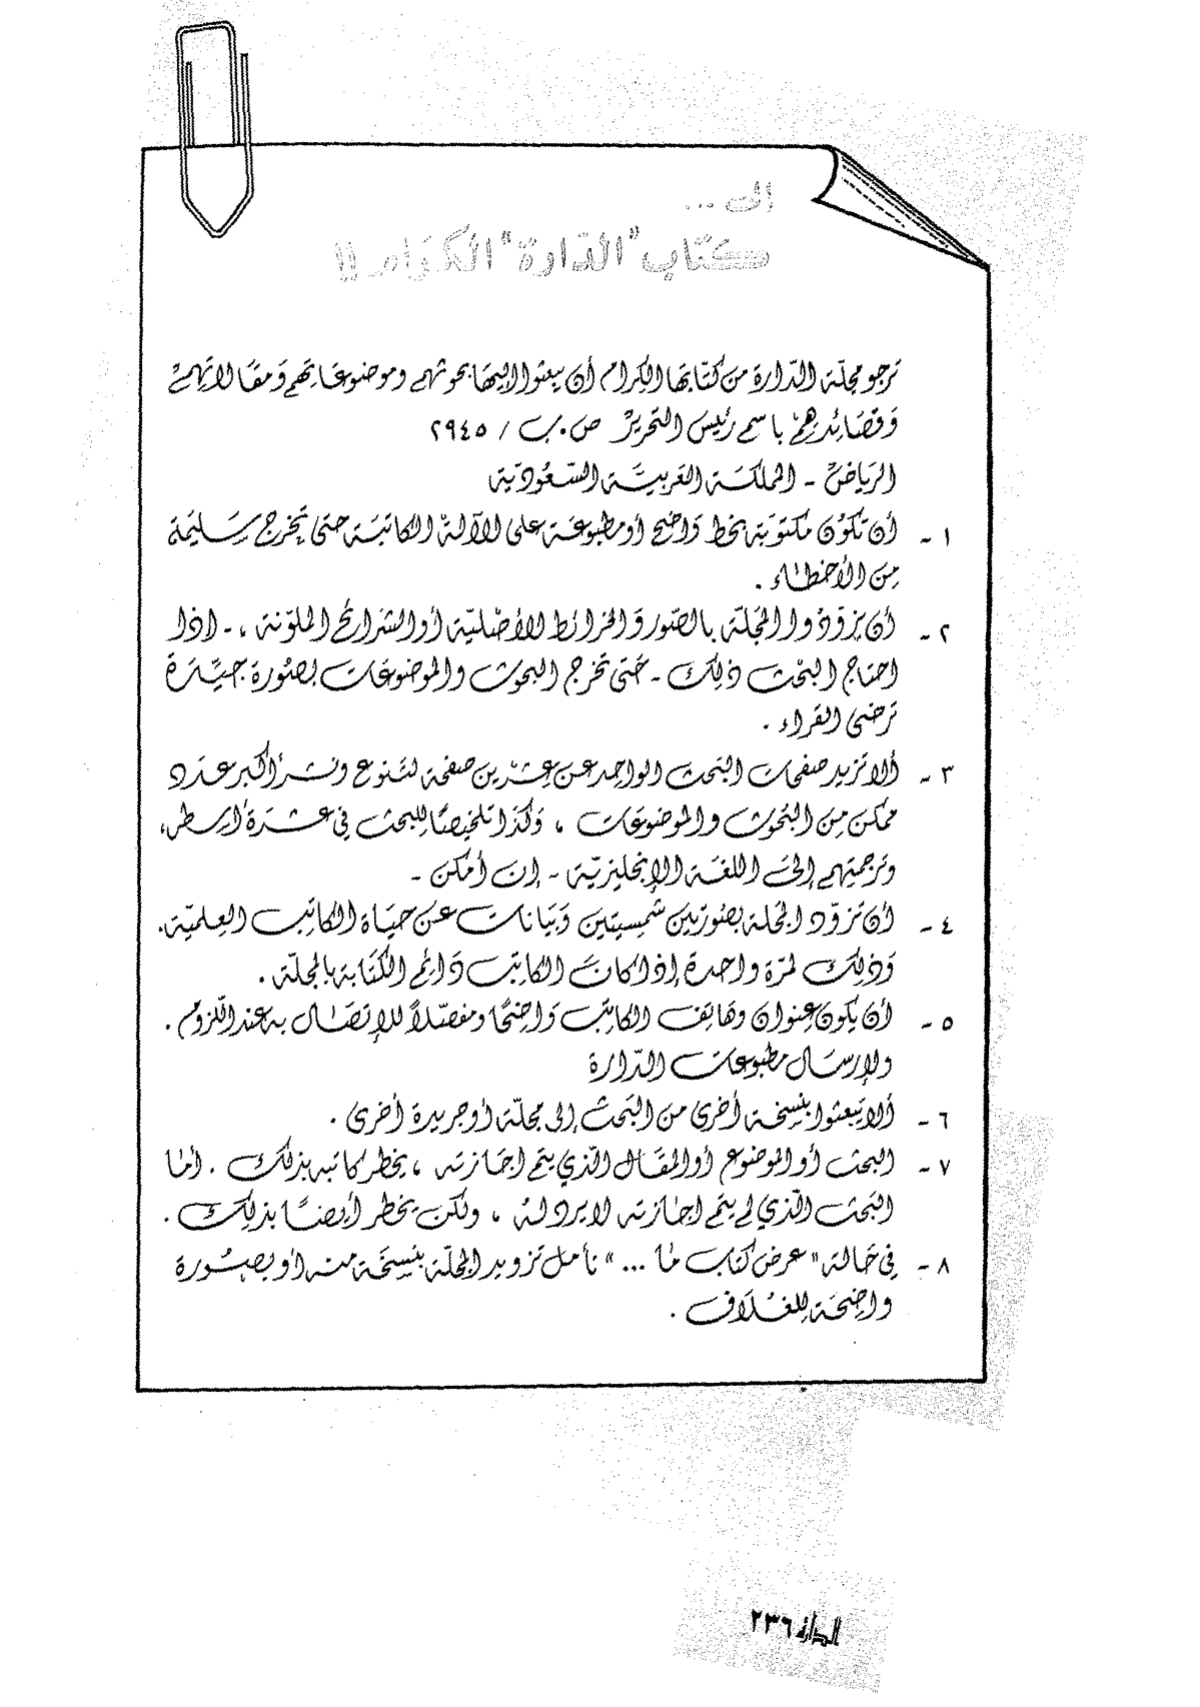 إلى ...
كتاب "الدارة" الكرام !!
ترجو مجلة الدّارة من كتّابها الكرام أن يبعثوا إليها بحوثهم وموضوعاتهم ومقالاتهم
وقصائدهم باسم رئيس التحرير ص.ب / ٢٩٤٥
الرياض - المملكة العربيّة السّعُوديّة
١ - أن تكون مكتوبة بخط واضح أو مطبوعة على الآلة الكاتبة حتى تخرج سليمة
من الأخطاء .
٢ - أن يزوّدوا المجلّة بالصّور والخرائط الأصليّة أو الشرائح الملوّنة ، - إذا
احتاج البحث ذلك - حتى تخرج البحوث والموضوعات بصورة جيّدة
ترضى القراء .
٣ - ألا تزيد صفحات البحث الواحد عن عشرين صفحة لتنوع ونشر أكبر عدد
ممكن من البحوث والموضوعات ، وكذا تلخيصًا للبحث في عشرة أسطر،
وترجمتهم إلى اللغة الإنجليزيّة - إن أمكن -
٤ - أن تزوّد المجلة بصورتين شمسيتين وبيانات عن حياة الكاتب العلميّة.
وذلك لمرّة واحدة إذا كان الكاتب دائم الكتابة بالمجلّة .
٥ - أن يكون عنوان وهاتف الكاتب واضحًا ومفصّلاً للإتصال به عند اللّزوم .
ولإرسال مطبوعات الدّارة
٦ - ألا يبعثوا بنسخة أخرى من البحث إلى مجلّة أو جريدة أخرى .
٧ - البحث أو الموضوع أو المقال الّذي يتم اجازته ، يخطر كاتبه بذلك . أما
البحث الّذي لم يتم اجازته لا يرد له ، ولكن يخطر أيضًا بذلك .
٨ - في حالة "عرض كتاب ما ..." نأمل تزويد المجلّة بنسخة منه أو بصورة
واضحة للغلاف .
الدارة ٢٣٦